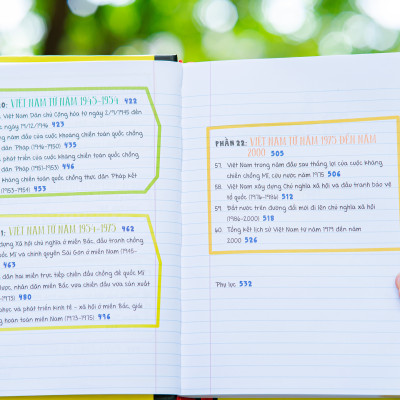 0: VIỆT NAM TỪ NĂM 1945-1954 422
Việt Nam Dân chủ Cộng hòa từ ngày 2/9/1945 đến
ngày 19/12/1946 423
năm đầu của cuộc kháng chiến toàn quốc chống
dân Pháp (1946-1950) 435
phát triển của cuộc kháng chiến toàn quốc chống
dân Pháp (1951-1953) 446
kháng chiến toàn quốc chống thực dân Pháp kết
(1953-1954) 453
1: VIỆT NAM TỪ NĂM 1954-1975 462
dựng Xã hội chủ nghĩa ở miền Bắc, đấu tranh chống
Mĩ và chính quyền Sài Gòn ở miền Nam (1954-
463
dân hai miền trực tiếp chiến đấu chống đế quốc Mĩ
lược, nhân dân miền Bắc vừa chiến đấu vừa sản xuất
-1973) 480
phục và phát triển kinh tế - xã hội ở miền Bắc, giải
hoàn toàn miền Nam (1973-1975) 496
PHẦN 22: VIỆT NAM TỪ NĂM 1975 ĐẾN NĂM
2000 505
57. Việt Nam trong năm đầu sau thắng lợi của cuộc kháng
chiến chống Mĩ, cứu nước năm 1975 506
58. Việt Nam xây dựng Chủ nghĩa xã hội và đấu tranh bảo vệ
tổ quốc (1976-1986) 512
59. Đất nước trên đường đổi mới đi lên chủ nghĩa xã hội
(1986-2000) 518
60. Tổng kết lịch sử Việt Nam từ năm 1919 đến năm
2000 526
Phụ lục 532